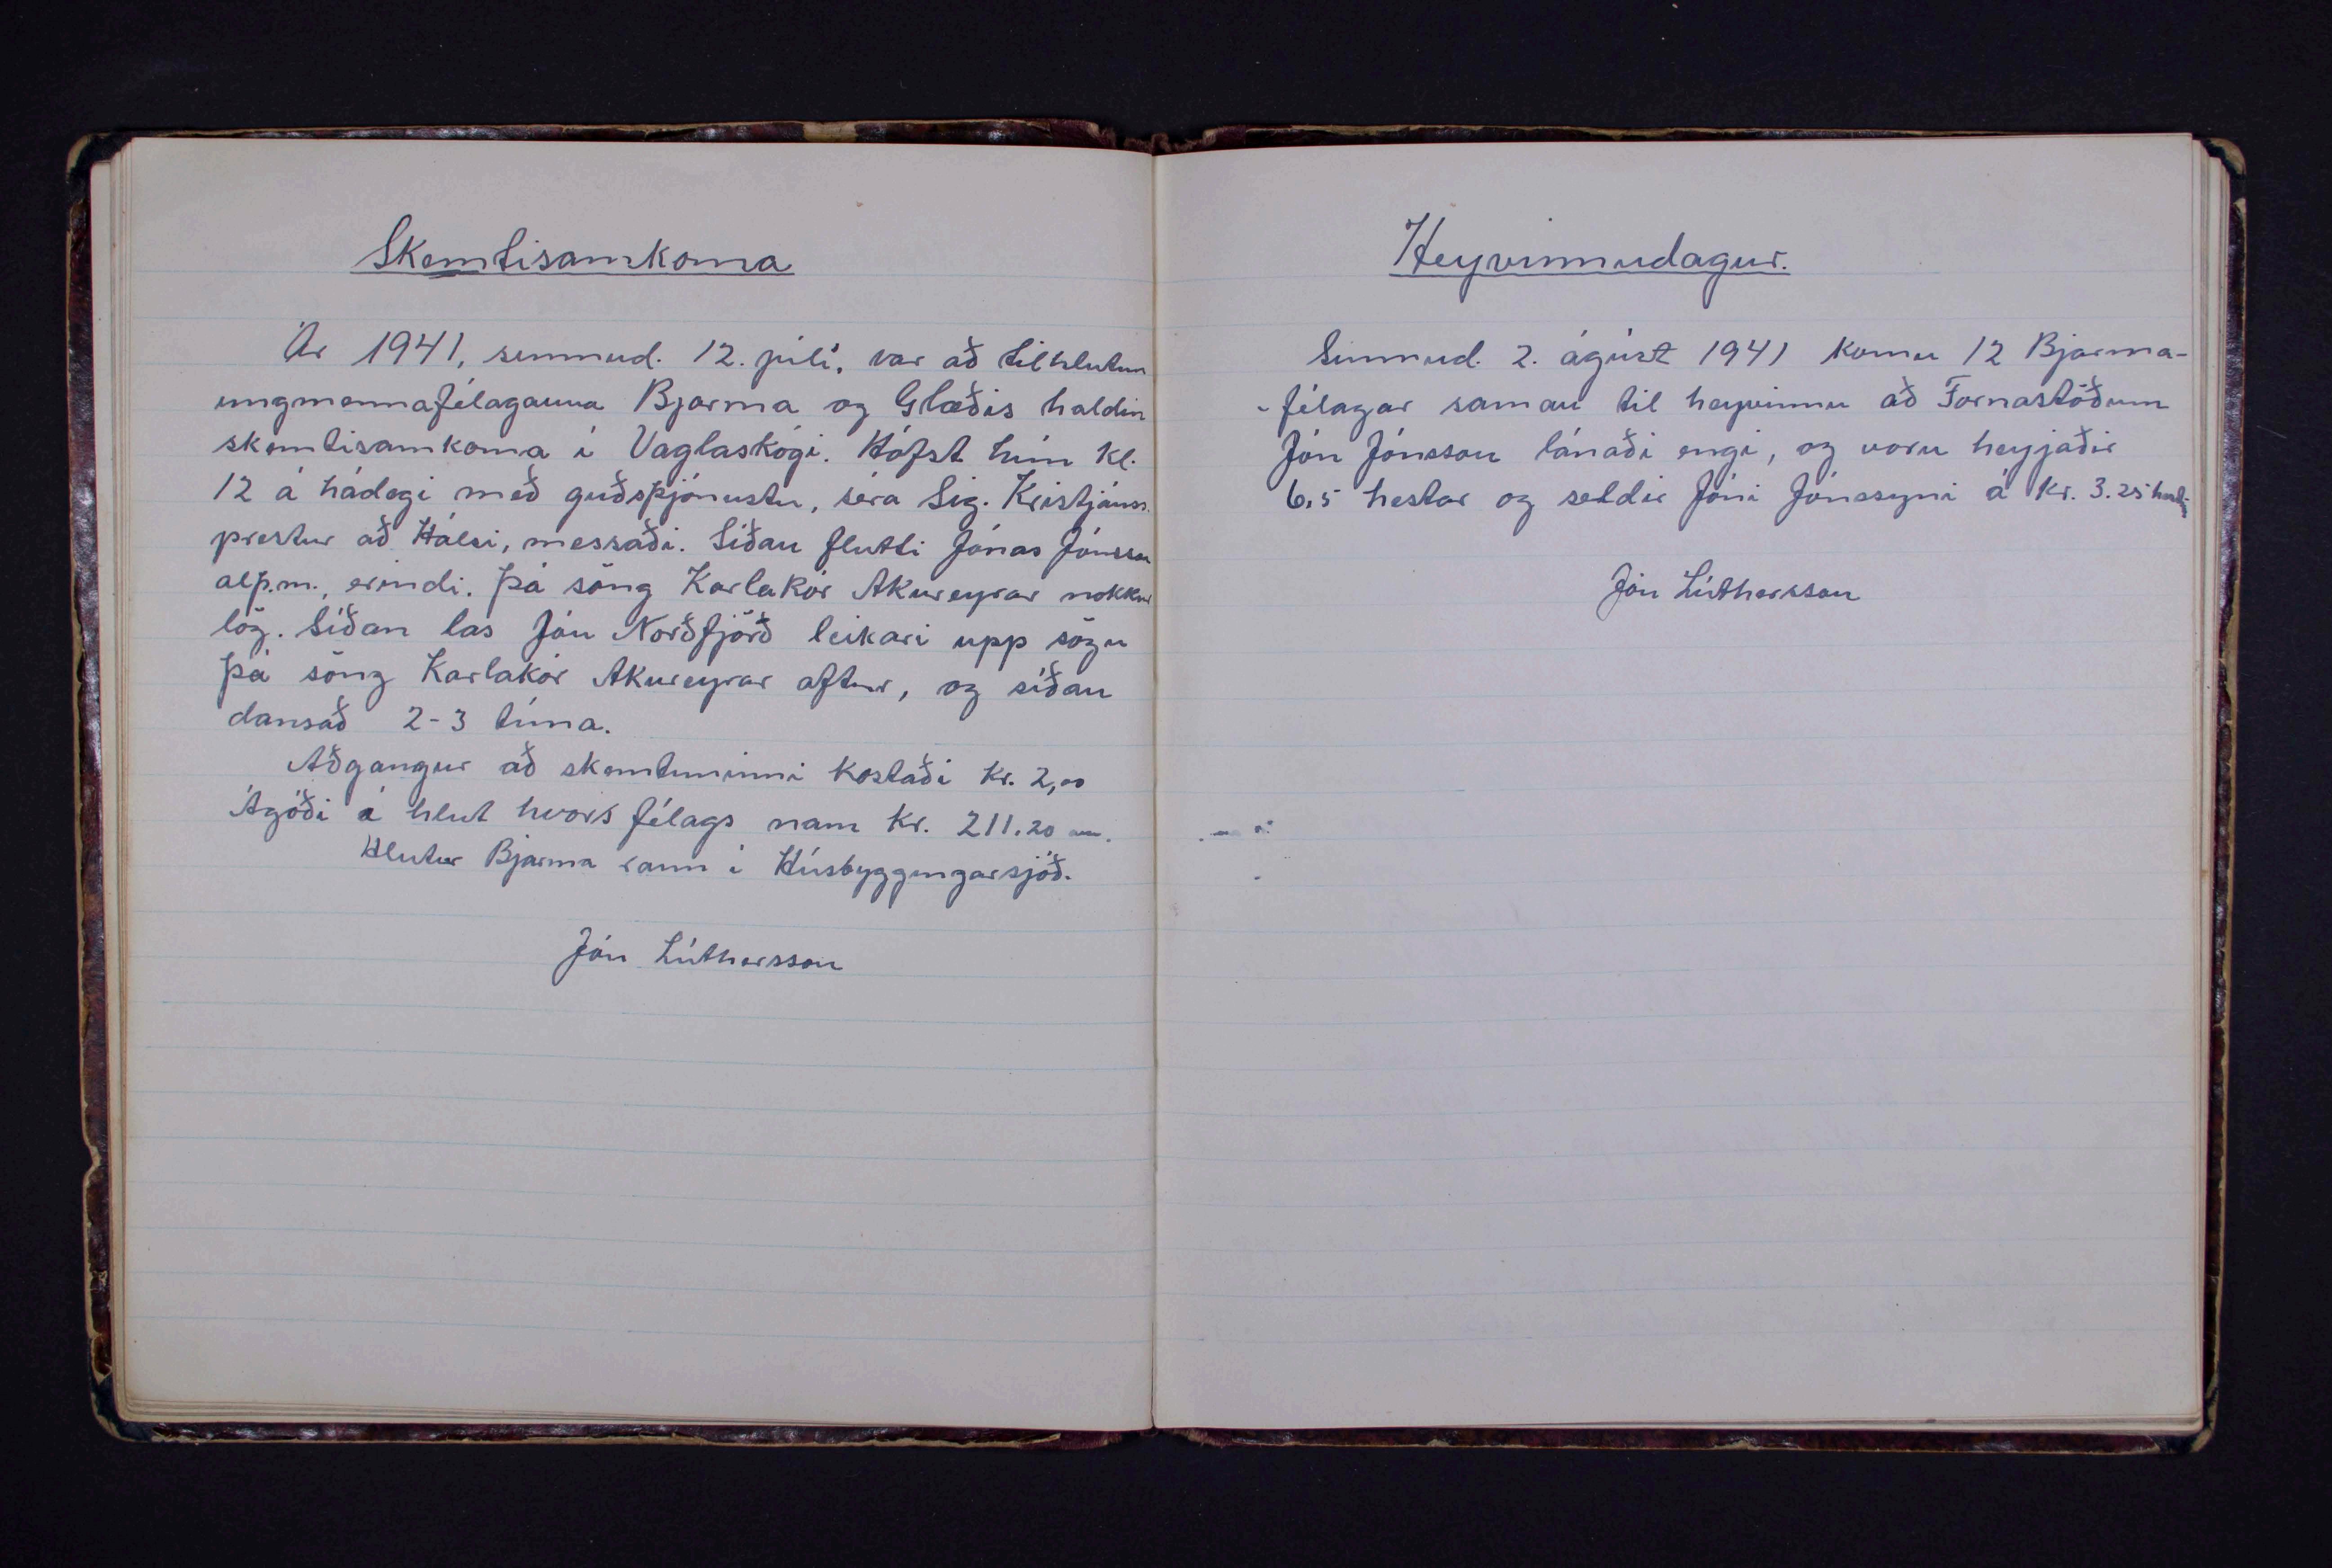 Skemtisamkoma
Ár 1941, sunnud. 12. júlí, var að tilhlutun
ungmennafélaganna Bjarma og Glæðis haldin
skemtisamkoma í Vaglaskógi. Hófst hún kl.
12 á hádegi með guðsþjónustu, séra Sig. Kristjánss.
prestur að Hálsi, messaði. Síðan flutti Jónas Jónsson
alþ.m., erindi. Þá söng Karlakór Akureyrar nokkur
lög. Síðan las Jón Norðfjörð leikari upp sögu
Þá söng Karlakór Akureyrar aftur, og síðan
dansað 2-3 tíma.
Aðgangur að skemtuninni kostaði kr. 2,00
Ágóði á hlut hvors félags nam kr. 211.20
Hlutur Bjarma rann í Húsbyggingarsjóð.
Jón Lúthersson
Heyvinnudagur.
Sunnud. 2. ágúst 1941 komu 12 Bjarma-
-félagar saman til heyvinnu að Fornastöðum
Jón Jónsson lánaði engi, og voru heyjaðir
6,5 hestar og seldir Jóni Jónssyni á kr. 3.25
Jón Lúthersson